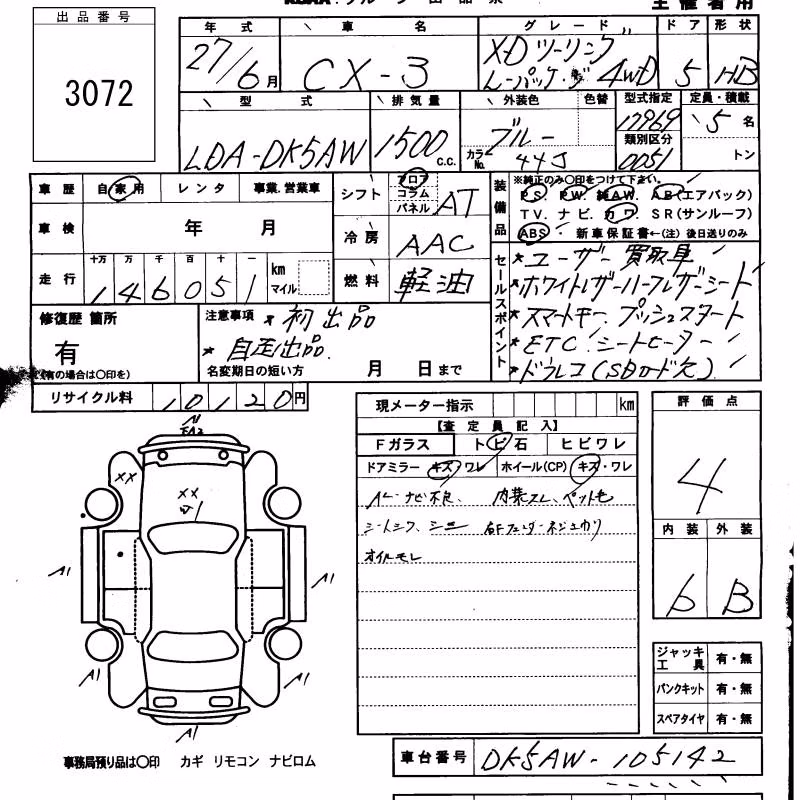 主催者用
出品番号
3072
年式 車名 グレード ドア 形状
27/6月 CX-3 X-Dツーリング Lーパッケージ 4WD 5 HB
型式 排気量 外装色 色替 型式指定 定員・積載
LDA-DK5AW 1500 c.c. ブルー カラーNo. 44J 17969 類別区分 0051 5名 トン
車歴 自家用 レンタ 事業、営業車
車検 年 月
走行 十万 万 千 百 十 一 km マイル
146051
シフト フロア コラム パネル AT
冷房 AAC
燃料 軽油
装備品 ※純正のみ〇印をつけて下さい。
PS. PW. 純AW. AB(エアバック)
TV. ナビ. カワ. SR(サンルーフ)
ABS. 新車保証書←(注)後日送りのみ
セールスポイント
★ユーザー買取車
★ホワイトレザーハーフレザーシート
★スマートキー、プッシュスタート
★ETC、シートヒーター
★ドラレコ(SDカード欠)
修復歴 箇所
有
(有の場合は〇印を)
注意事項 ★初出品
★自走出品
名変期日の短い方 月 日まで
リサイクル料 10120円
現メーター指示 km
【査定員記入】
Fガラス トビ石 ヒビワレ
ドアミラー キズ・ワレ ホイール(CP) キズ・ワレ
ナビ不良、内葉スレ、ペット毛
オイルモレ
評価点
4
内装 外装
6 B
XX
XX
A1
A1
A1
A1
A1
ジャッキ工具 有・無
パンクキット 有・無
スペアタイヤ 有・無
事務局預り品は〇印 カギ リモコン ナビロム
車台番号 DK5AW-105142